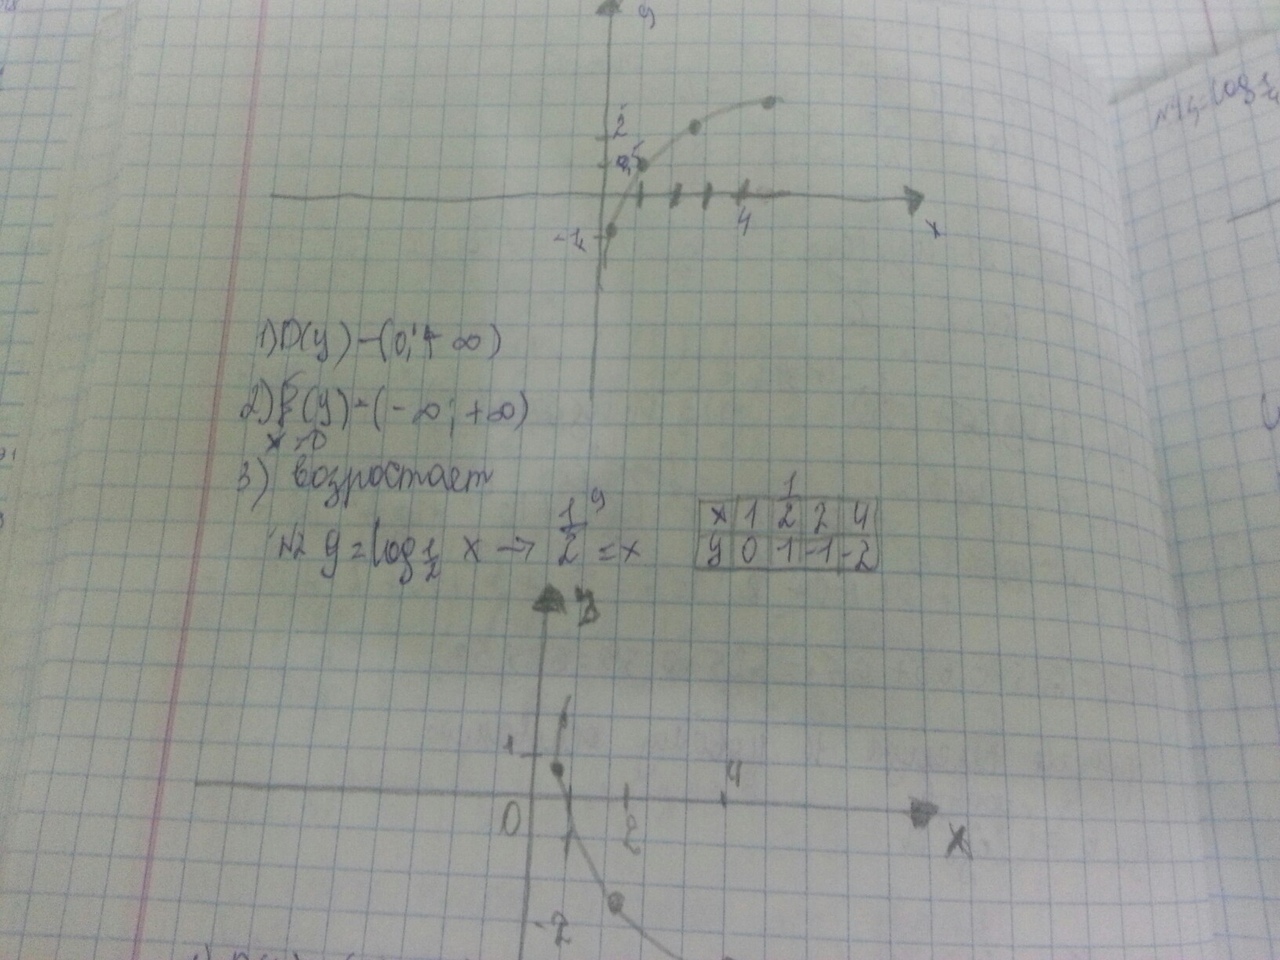 y
2
0,5
4
x
-1
1) D(y) - (0; + ∞)
2) E(y) - (- ∞; +∞)
x >0
3) возростает
N2 y = log 1/2 x → 1/2 ^y = x
x 1 1/2 2 4
y 0 1 -1 -2
y
1
4
0
2
x
-2